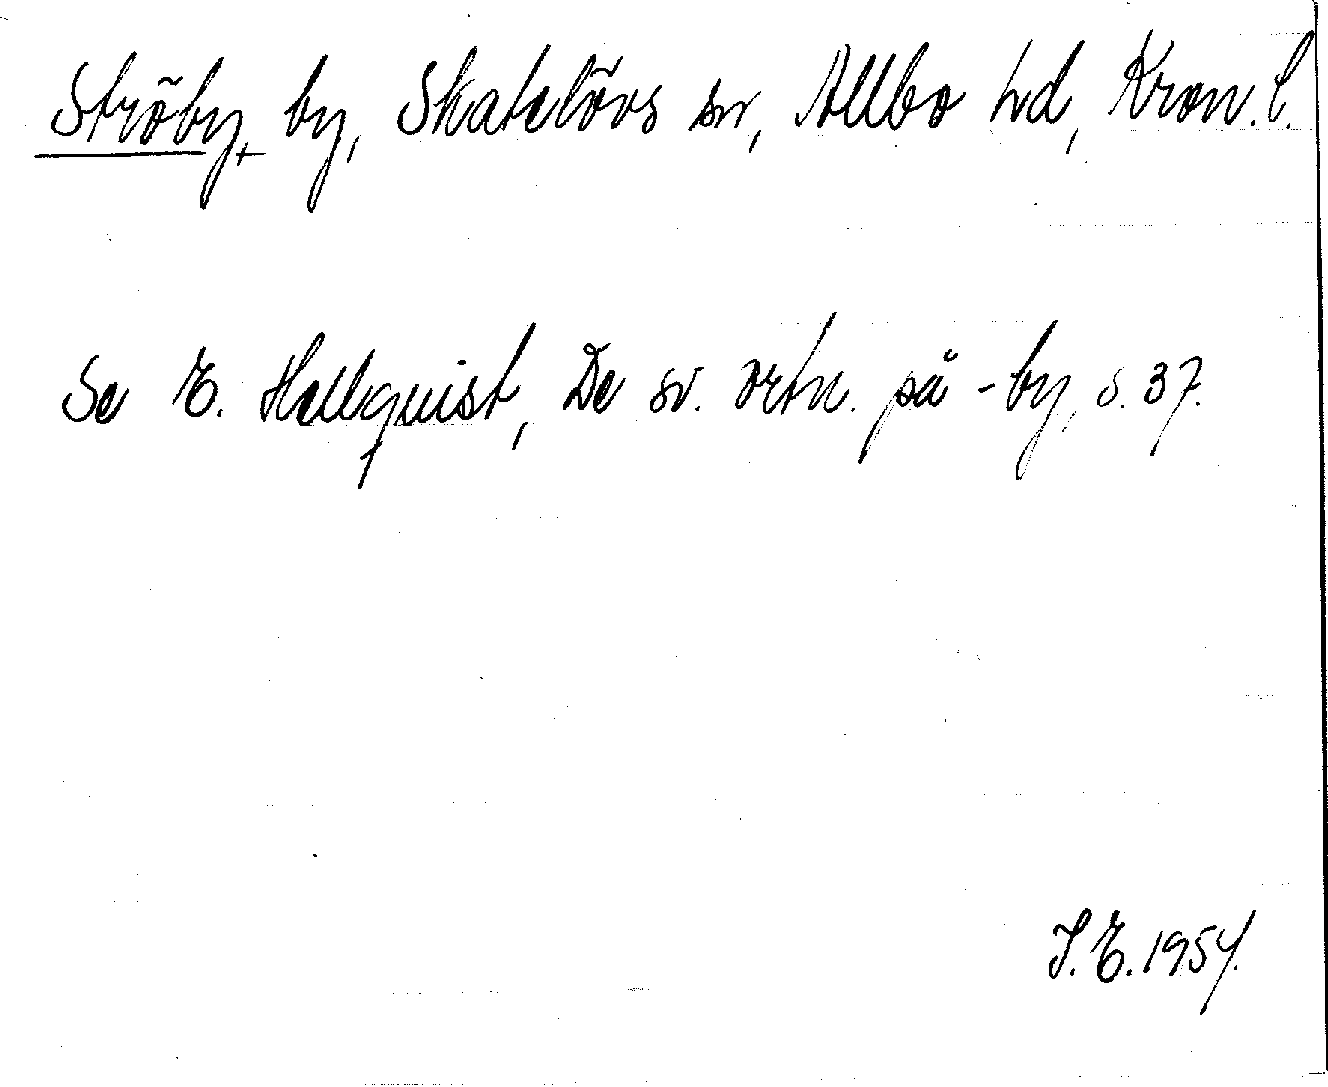 Ströby, by, Skatelövs sn, Allbo hd, Kron. l.
Se E. Hellquist, De sv. ortn. på -by, s. 37.
I. E. 1954.